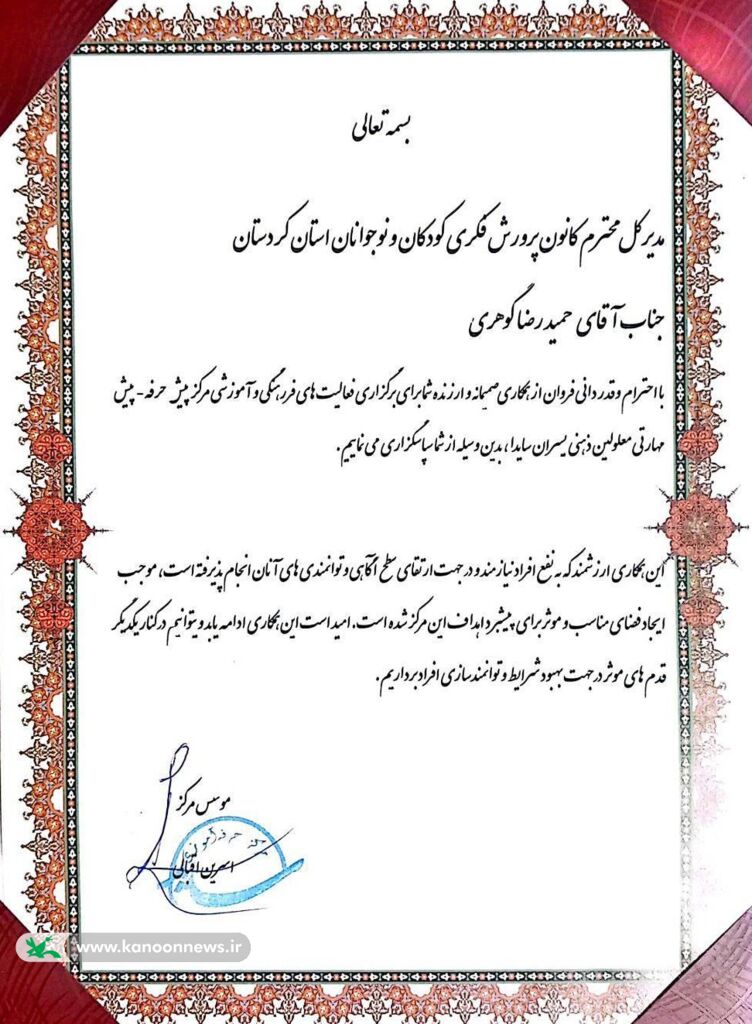 بسمه تعالی
مدیرکل محترم کانون پرورش فکری کودکان و نوجوانان استان کردستان
جناب آقای حمیدرضا گوهری
با احترام و قدردانی فروان از همکاری صمیمانه و ارزنده شما برای برگزاری فعالیت های فرهنگی و آموزشی مرکز پیش حرفه - پیش
مهارتی معلولین ذهنی پسران سایدا، بدین وسیله از شما سپاسگزاری می نماییم.
این همکاری ارزشمند که به نفع افراد نیازمند و در جهت ارتقای سطح آگاهی و توانمندی های آنان انجام پذیرفته است، موجب
ایجاد فضای مناسب و موثر برای پیشبرد اهداف این مرکز شده است. امید است این همکاری ادامه یابد و بتوانیم در کنار یکدیگر
قدم های موثر در جهت بهبود شرایط و توانمندسازی افراد برداریم.
موسس مرکز
اسرین اقبالی
www.kanoonnews.ir